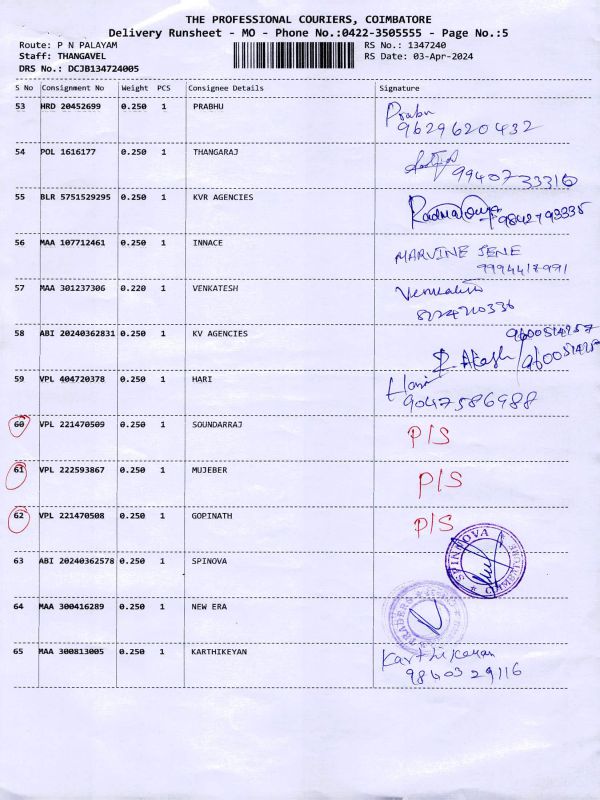 THE PROFESSIONAL COURIERS, COIMBATORE
Delivery Runsheet - MO - Phone No.:0422-3505555 - Page No.:5
Route: P N PALAYAM RS No.: 1347240
Staff: THANGAVEL RS Date: 03-Apr-2024
DRS No.: DCJB134724005
S No Consignment No Weight PCS Consignee Details Signature
53 HRD 20452699 0.250 1 PRABHU Prabu
9629620432
54 POL 1616177 0.250 1 THANGARAJ 9940733316
55 BLR 5751529295 0.250 1 KVR AGENCIES 9842793335
56 MAA 107712461 0.250 1 INNACE MARVINE JENE
9994417991
57 MAA 301237306 0.220 1 VENKATESH
58 ABI 20240362831 0.250 1 KV AGENCIES 9600514257
R. Akash
59 VPL 404720378 0.250 1 HARI Hari
9047586988
60 VPL 221470509 0.250 1 SOUNDARRAJ P/S
61 VPL 222593867 0.250 1 MUJEBER P/S
62 VPL 221470508 0.250 1 GOPINATH P/S
63 ABI 20240362578 0.250 1 SPINOVA SPINNOVA
64 MAA 300416289 0.250 1 NEW ERA TRADERS
65 MAA 300813005 0.250 1 KARTHIKEYAN Karthikeyan
9840329116